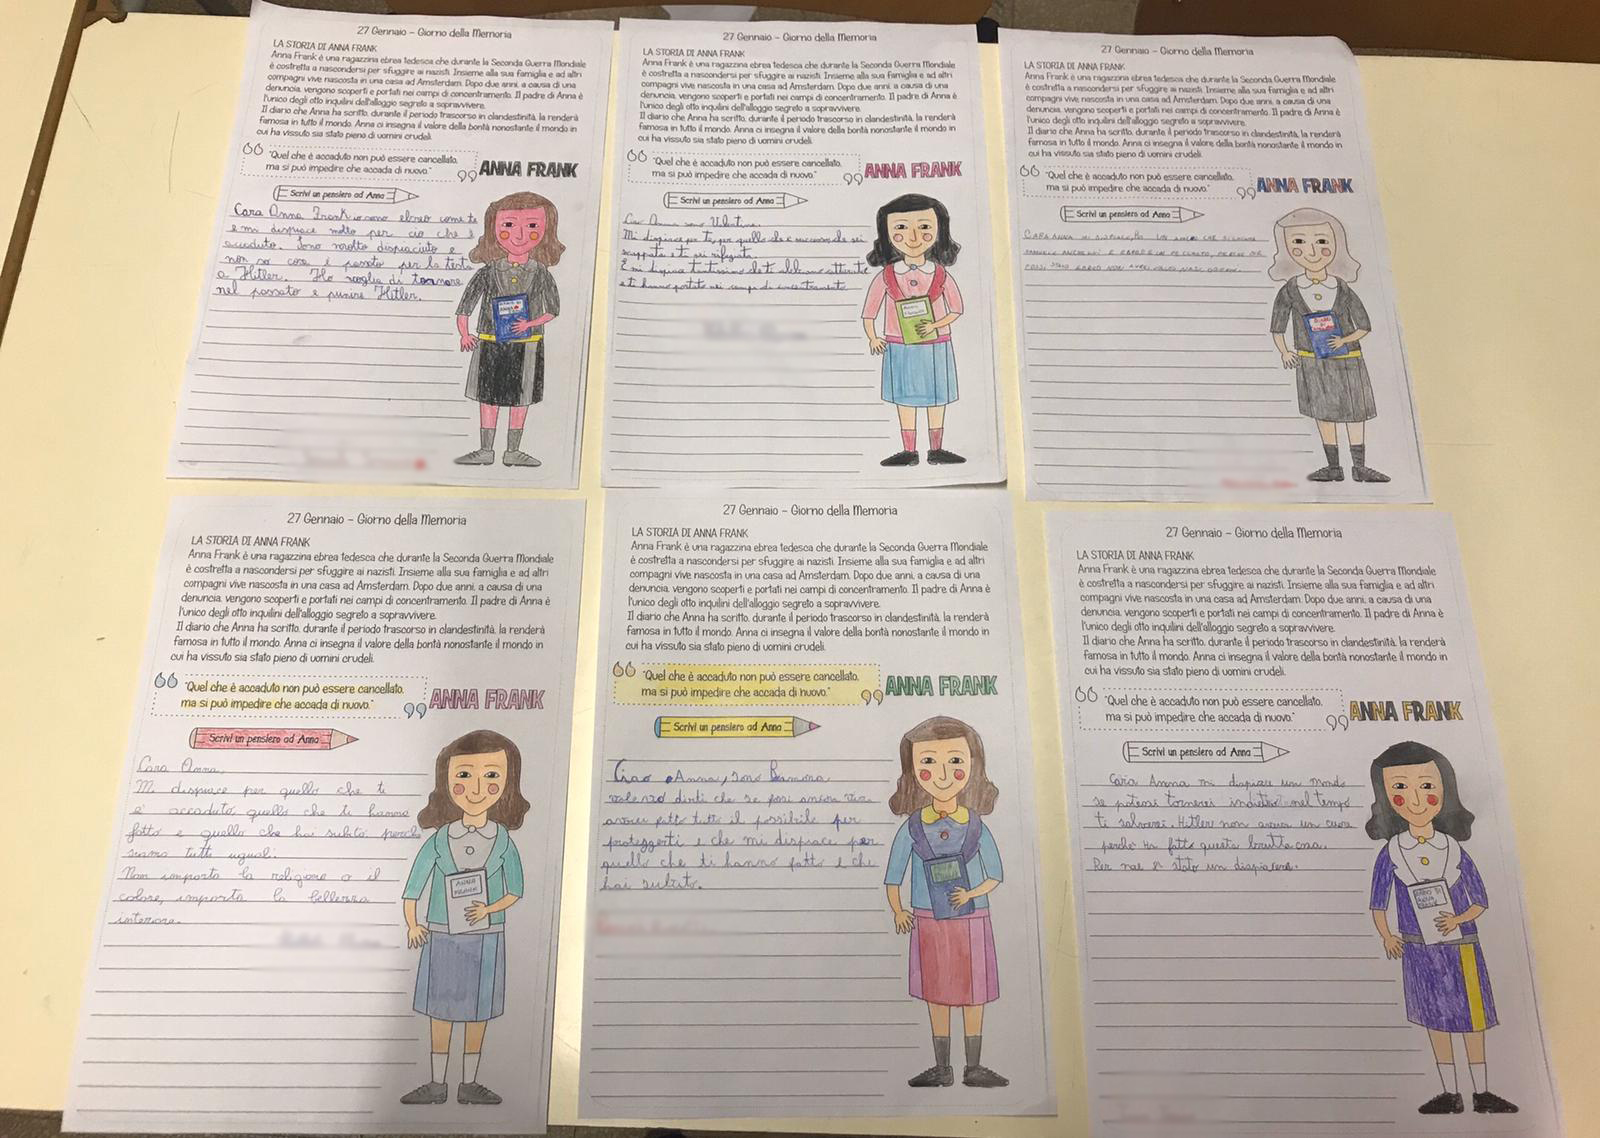 27 Gennaio - Giorno della Memoria
LA STORIA DI ANNA FRANK
Anna Frank è una ragazzina ebrea tedesca che durante la Seconda Guerra Mondiale
è costretta a nascondersi per sfuggire ai nazisti. Insieme alla sua famiglia e ad altri
compagni vive nascosta in una casa ad Amsterdam. Dopo due anni, a causa di una
denuncia, vengono scoperti e portati nei campi di concentramento. Il padre di Anna è
l'unico degli otto inquilini dell'alloggio segreto a sopravvivere.
Il diario che Anna ha scritto, durante il periodo trascorso in clandestinità, la renderà
famosa in tutto il mondo. Anna ci insegna il valore della bontà nonostante il mondo in
cui ha vissuto sia stato pieno di uomini crudeli.
"Quel che è accaduto non può essere cancellato,
ma si può impedire che accada di nuovo."
ANNA FRANK
Scrivi un pensiero ad Anna
Cara Anna Frank io sono ebreo come te
e mi dispiace molto per ciò che è
accaduto. Sono molto dispiaciuto e
non so cosa è passato per la testa
a Hitler. Ho voglia di tornare
nel passato e punire Hitler.
27 Gennaio - Giorno della Memoria
LA STORIA DI ANNA FRANK
Anna Frank è una ragazzina ebrea tedesca che durante la Seconda Guerra Mondiale
è costretta a nascondersi per sfuggire ai nazisti. Insieme alla sua famiglia e ad altri
compagni vive nascosta in una casa ad Amsterdam. Dopo due anni, a causa di una
denuncia, vengono scoperti e portati nei campi di concentramento. Il padre di Anna è
l'unico degli otto inquilini dell'alloggio segreto a sopravvivere.
Il diario che Anna ha scritto, durante il periodo trascorso in clandestinità, la renderà
famosa in tutto il mondo. Anna ci insegna il valore della bontà nonostante il mondo in
cui ha vissuto sia stato pieno di uomini crudeli.
"Quel che è accaduto non può essere cancellato,
ma si può impedire che accada di nuovo."
ANNA FRANK
Scrivi un pensiero ad Anna
Anna sono Valentina.
Mi dispiace per te, per quello che è successo che sei
scappata e ti sei rifugiata.
E mi dispiace tantissimo che ti abbiano
e ti hanno portato nei campi di concentramento
27 Gennaio - Giorno della Memoria
LA STORIA DI ANNA FRANK
Anna Frank è una ragazzina ebrea tedesca che durante la Seconda Guerra Mondiale
è costretta a nascondersi per sfuggire ai nazisti. Insieme alla sua famiglia e ad altri
compagni vive nascosta in una casa ad Amsterdam. Dopo due anni, a causa di una
denuncia, vengono scoperti e portati nei campi di concentramento. Il padre di Anna è
l'unico degli otto inquilini dell'alloggio segreto a sopravvivere.
Il diario che Anna ha scritto, durante il periodo trascorso in clandestinità, la renderà
famosa in tutto il mondo. Anna ci insegna il valore della bontà nonostante il mondo in
cui ha vissuto sia stato pieno di uomini crudeli.
"Quel che è accaduto non può essere cancellato,
ma si può impedire che accada di nuovo."
ANNA FRANK
Scrivi un pensiero ad Anna
CARA ANNA MI DISPIACE, HO UN AMICO CHE SI CHIAMA
27 Gennaio - Giorno della Memoria
LA STORIA DI ANNA FRANK
Anna Frank è una ragazzina ebrea tedesca che durante la Seconda Guerra Mondiale
è costretta a nascondersi per sfuggire ai nazisti. Insieme alla sua famiglia e ad altri
compagni vive nascosta in una casa ad Amsterdam. Dopo due anni, a causa di una
denuncia, vengono scoperti e portati nei campi di concentramento. Il padre di Anna è
l'unico degli otto inquilini dell'alloggio segreto a sopravvivere.
Il diario che Anna ha scritto, durante il periodo trascorso in clandestinità, la renderà
famosa in tutto il mondo. Anna ci insegna il valore della bontà nonostante il mondo in
cui ha vissuto sia stato pieno di uomini crudeli.
"Quel che è accaduto non può essere cancellato,
ma si può impedire che accada di nuovo."
ANNA FRANK
Scrivi un pensiero ad Anna
Cara Anna,
Mi dispiace per quello che ti
è accaduto, quello che ti hanno
fatto e quello che hai subito, perché
siamo tutti uguali.
Non importa la religione o il
colore, importa la bellezza
interiore.
ANNA
FRANK
27 Gennaio - Giorno della Memoria
LA STORIA DI ANNA FRANK
Anna Frank è una ragazzina ebrea tedesca che durante la Seconda Guerra Mondiale
è costretta a nascondersi per sfuggire ai nazisti. Insieme alla sua famiglia e ad altri
compagni vive nascosta in una casa ad Amsterdam. Dopo due anni, a causa di una
denuncia, vengono scoperti e portati nei campi di concentramento. Il padre di Anna è
l'unico degli otto inquilini dell'alloggio segreto a sopravvivere.
Il diario che Anna ha scritto, durante il periodo trascorso in clandestinità, la renderà
famosa in tutto il mondo. Anna ci insegna il valore della bontà nonostante il mondo in
cui ha vissuto sia stato pieno di uomini crudeli.
"Quel che è accaduto non può essere cancellato,
ma si può impedire che accada di nuovo."
ANNA FRANK
Scrivi un pensiero ad Anna
Ciao Anna, sono
volevo dirti che se fossi ancora viva
avrei fatto tutto il possibile per
proteggerti e che mi dispiace per
quello che ti hanno fatto e che
hai subito.
27 Gennaio - Giorno della Memoria
LA STORIA DI ANNA FRANK
Anna Frank è una ragazzina ebrea tedesca che durante la Seconda Guerra Mondiale
è costretta a nascondersi per sfuggire ai nazisti. Insieme alla sua famiglia e ad altri
compagni vive nascosta in una casa ad Amsterdam. Dopo due anni, a causa di una
denuncia, vengono scoperti e portati nei campi di concentramento. Il padre di Anna è
l'unico degli otto inquilini dell'alloggio segreto a sopravvivere.
Il diario che Anna ha scritto, durante il periodo trascorso in clandestinità, la renderà
famosa in tutto il mondo. Anna ci insegna il valore della bontà nonostante il mondo in
cui ha vissuto sia stato pieno di uomini crudeli.
"Quel che è accaduto non può essere cancellato,
ma si può impedire che accada di nuovo."
ANNA FRANK
Scrivi un pensiero ad Anna
Cara Anna mi dispiace un mondo
se potessi tornerei indietro nel tempo
ti salverei. Hitler non aveva un cuore
perché ha fatto questa brutta cosa.
Per me è stato un dispiacere.